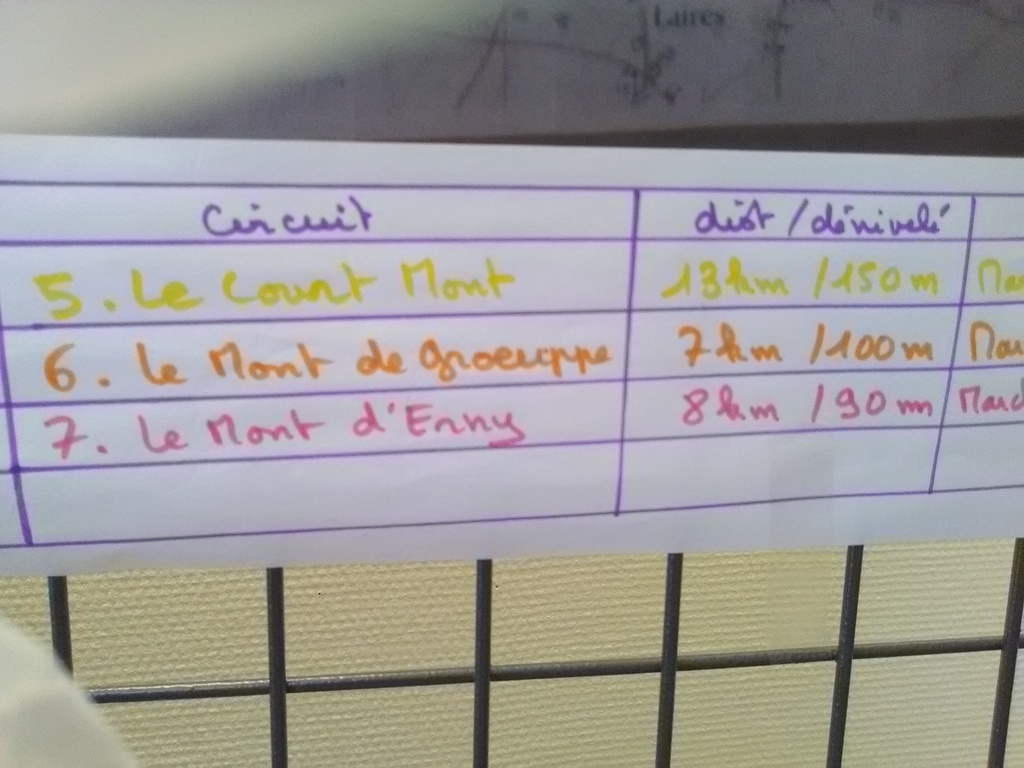 Laires
Circuit dist/dénivelé
5. Le Court Mont 13km /150m
6. Le Mont de Groeuppe 7km /100m
7. Le Mont d'Enny 8km /90m